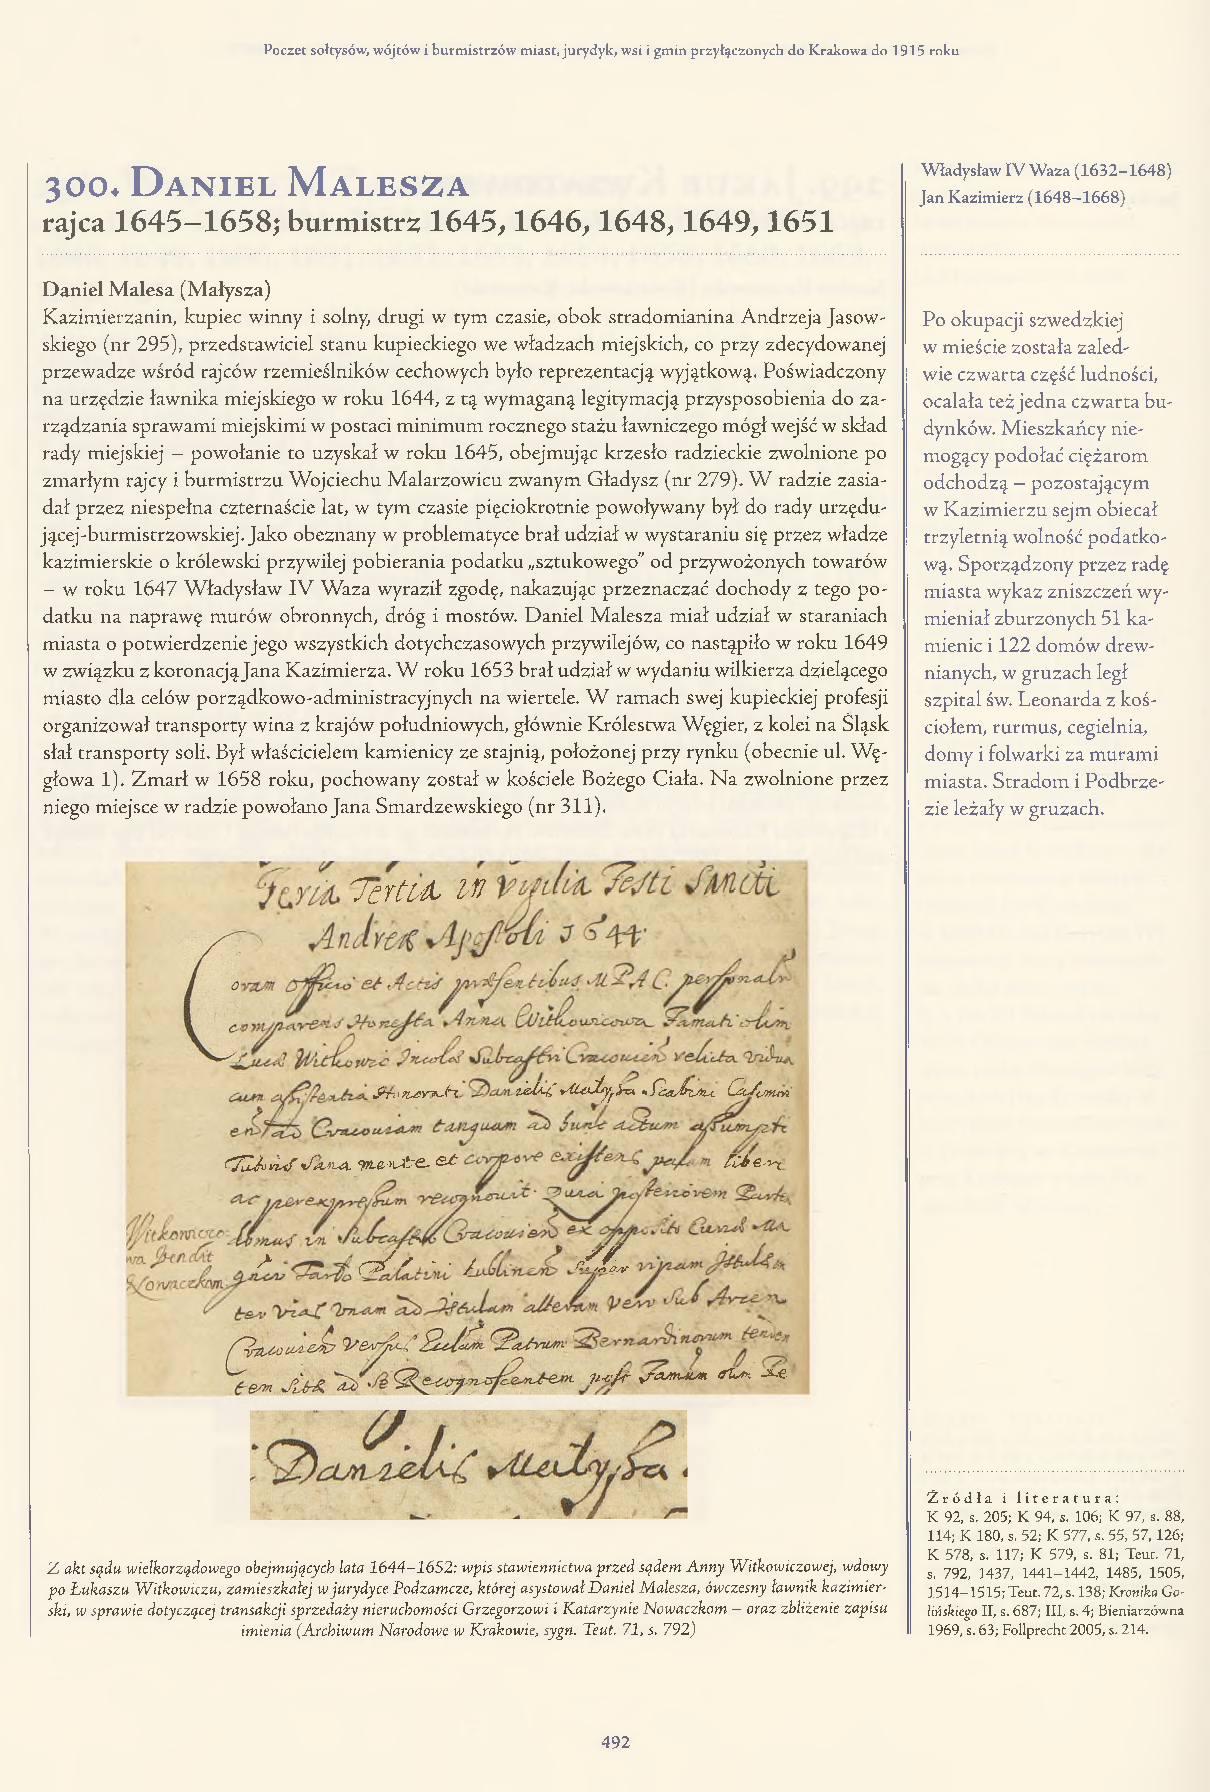 Poczet sołtysów, wójtów i burmistrzów miast, jurydyk, wsi i gmin przyłączonych do Krakowa do 1915 roku
300. Daniel Malesza
rajca 1645–1658; burmistrz 1645, 1646, 1648, 1649, 1651
Daniel Malesa (Małysza)
Kazimierzanin, kupiec winny i solny, drugi w tym czasie, obok stradomianina Andrzeja Jasow-
skiego (nr 295), przedstawiciel stanu kupieckiego we władzach miejskich, co przy zdecydowanej
przewadze wśród rajców rzemieślników cechowych było reprezentacją wyjątkową. Poświadczony
na urzędzie ławnika miejskiego w roku 1644, z tą wymaganą legitymacją przysposobienia do za-
rządzania sprawami miejskimi w postaci minimum rocznego stażu ławniczego mógł wejść w skład
rady miejskiej – powołanie to uzyskał w roku 1645, obejmując krzesło radzieckie zwolnione po
zmarłym rajcy i burmistrzu Wojciechu Malarzowicu zwanym Gładysz (nr 279). W radzie zasia-
dał przez niespełna czternaście lat, w tym czasie pięciokrotnie powoływany był do rady urzędu-
jącej-burmistrzowskiej. Jako obeznany w problematyce brał udział w wystaraniu się przez władze
kazimierskie o królewski przywilej pobierania podatku „sztukowego" od przywożonych towarów
– w roku 1647 Władysław IV Waza wyraził zgodę, nakazując przeznaczać dochody z tego po-
datku na naprawę murów obronnych, dróg i mostów. Daniel Malesza miał udział w staraniach
miasta o potwierdzenie jego wszystkich dotychczasowych przywilejów, co nastąpiło w roku 1649
w związku z koronacją Jana Kazimierza. W roku 1653 brał udział w wydaniu wilkierza dzielącego
miasto dla celów porządkowo-administracyjnych na wiertele. W ramach swej kupieckiej profesji
organizował transporty wina z krajów południowych, głównie Królestwa Węgier, z kolei na Śląsk
słał transporty soli. Był właścicielem kamienicy ze stajnią, położonej przy rynku (obecnie ul. Wę-
głowa 1). Zmarł w 1658 roku, pochowany został w kościele Bożego Ciała. Na zwolnione przez
niego miejsce w radzie powołano Jana Smardzewskiego (nr 311).
Feria Tertia in Vigilia Festi Sancti
Andreæ Apostoli 1644
Coram Officio et Actis præsentibus M P A C. personalr
comparens Honesta Anna Witkowicowa Famati olim
Lucæ Witkowic Incolæ Subcastri Cracouien relicta Vidua
cum assistentia Honorati Danielis Małyssa Scabini Casimiri
en ad Cracouiam tanquam ad hunc actum assumpti
Tutoris Sana mente et corpore existens palam libere
ac per expressum recognouit. Quia posteriorem Partem
domus in Subcastro Cracouien ex opposito Curiæ Ma
gnci Tarło Palatini Lublinen super ripam Istulæ in
ter Vias Vnam ad Istulam alteram Vero Sub Arcem
Cracouien Versus Eccliam Patrum Bernardinorum tenden
tem Sitæ ad Se Recognoscentem post Famum olim Pe
Witkowico
wa Vendit
Nowaczkom
Danielis Małyssa
Z akt sądu wielkorządowego obejmujących lata 1644–1652: wpis stawiennictwa przed sądem Anny Witkowiczowej, wdowy
po Łukaszu Witkowiczu, zamieszkałej w jurydyce Podzamcze, której asystował Daniel Malesza, ówczesny ławnik kazimier-
ski, w sprawie dotyczącej transakcji sprzedaży nieruchomości Grzegorzowi i Katarzynie Nowaczkom – oraz zbliżenie zapisu
imienia (Archiwum Narodowe w Krakowie, sygn. Teut. 71, s. 792)
Władysław IV Waza (1632–1648)
Jan Kazimierz (1648–1668)
Po okupacji szwedzkiej
w mieście została zaled-
wie czwarta część ludności,
ocalała też jedna czwarta bu-
dynków. Mieszkańcy nie-
mogący podołać ciężarom
odchodzą – pozostającym
w Kazimierzu sejm obiecał
trzyletnią wolność podatko-
wą. Sporządzony przez radę
miasta wykaz zniszczeń wy-
mieniał zburzonych 51 ka-
mienic i 122 domów drew-
nianych, w gruzach legł
szpital św. Leonarda z koś-
ciołem, rurmus, cegielnia,
domy i folwarki za murami
miasta. Stradom i Podbrze-
zie leżały w gruzach.
Źródła i literatura:
K 92, s. 205; K 94, s. 106; K 97, s. 88,
114; K 180, s. 52; K 577, s. 55, 57, 126;
K 578, s. 117; K 579, s. 81; Teut. 71,
s. 792, 1437, 1441–1442, 1485, 1505,
1514–1515; Teut. 72, s. 138; Kronika Go-
lińskiego II, s. 687; III, s. 4; Bieniarzówna
1969, s. 63; Follprecht 2005, s. 214.
492